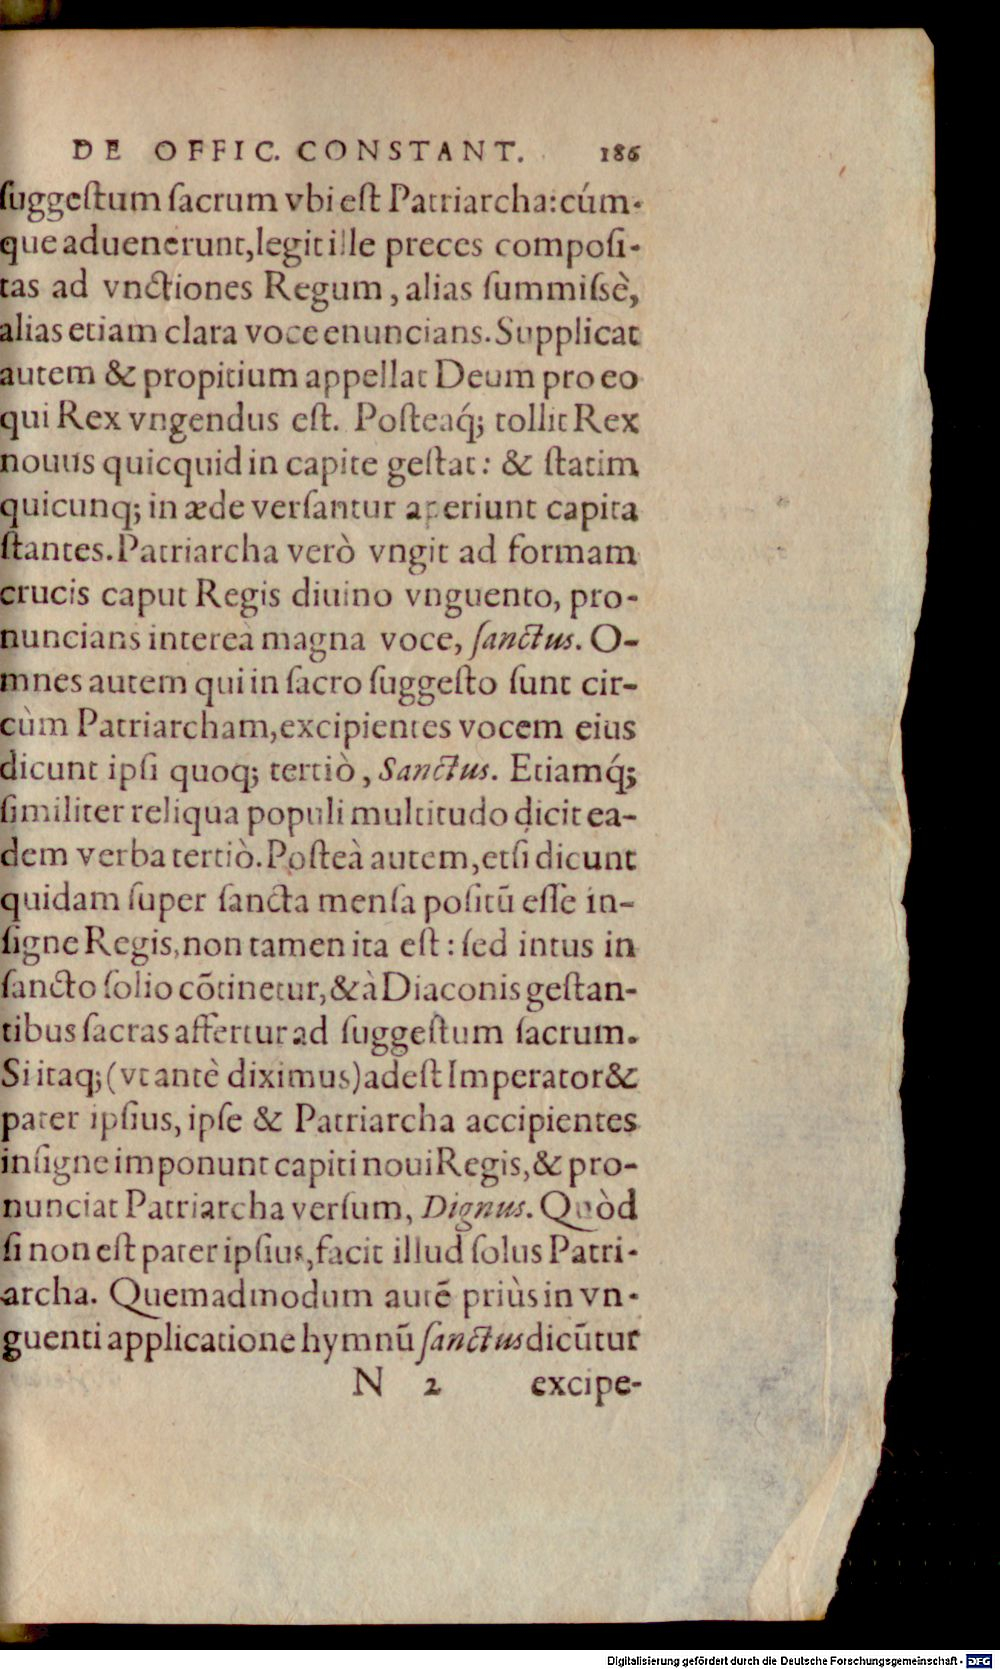 DE OFFIC. CONSTANT. 186
ſuggeſtum ſacrum vbi eſt Patriarcha: cúm-
que aduenerunt, legit ille preces compoſi-
tas ad vnctiones Regum, alias ſummiſsè,
alias etiam clara voce enuncians. Supplicat
autem & propitium appellat Deum pro eo
qui Rex vngendus eſt. Poſteaq́; tollit Rex
nouus quicquid in capite geſtat: & ſtatim
quicunq; in æde verſantur aperiunt capita
ſtantes. Patriarcha verò vngit ad formam
crucis caput Regis diuino vnguento, pro-
nuncians interea magna voce, ſanctus. O-
mnes autem qui in ſacro ſuggeſto ſunt cir-
cùm Patriarcham, excipientes vocem eius
dicunt ipſi quoq; tertiò, Sanctus. Etiamq́;
ſimiliter reliqua populi multitudo dicit ea-
dem verba tertiò. Poſteà autem, etſi dicunt
quidam ſuper ſancta menſa poſitū eſſe in-
ſigne Regis, non tamen ita eſt: ſed intus in
ſancto ſolio cõtinetur, & à Diaconis geſtan-
tibus ſacras affertur ad ſuggeſtum ſacrum.
Si itaq; (vt antè diximus) adeſt Imperator &
pater ipſius, ipſe & Patriarcha accipientes
inſigne imponunt capiti noui Regis, & pro-
nunciat Patriarcha verſum, Dignus. Quòd
ſi non eſt pater ipſius, facit illud ſolus Patri-
archa. Quemadmodum autē priùs in vn-
guenti applicatione hymnū ſanctus dicūtur
N 2 excipe-
Digitalisierung gefördert durch die Deutsche Forschungsgemeinschaft - DFG